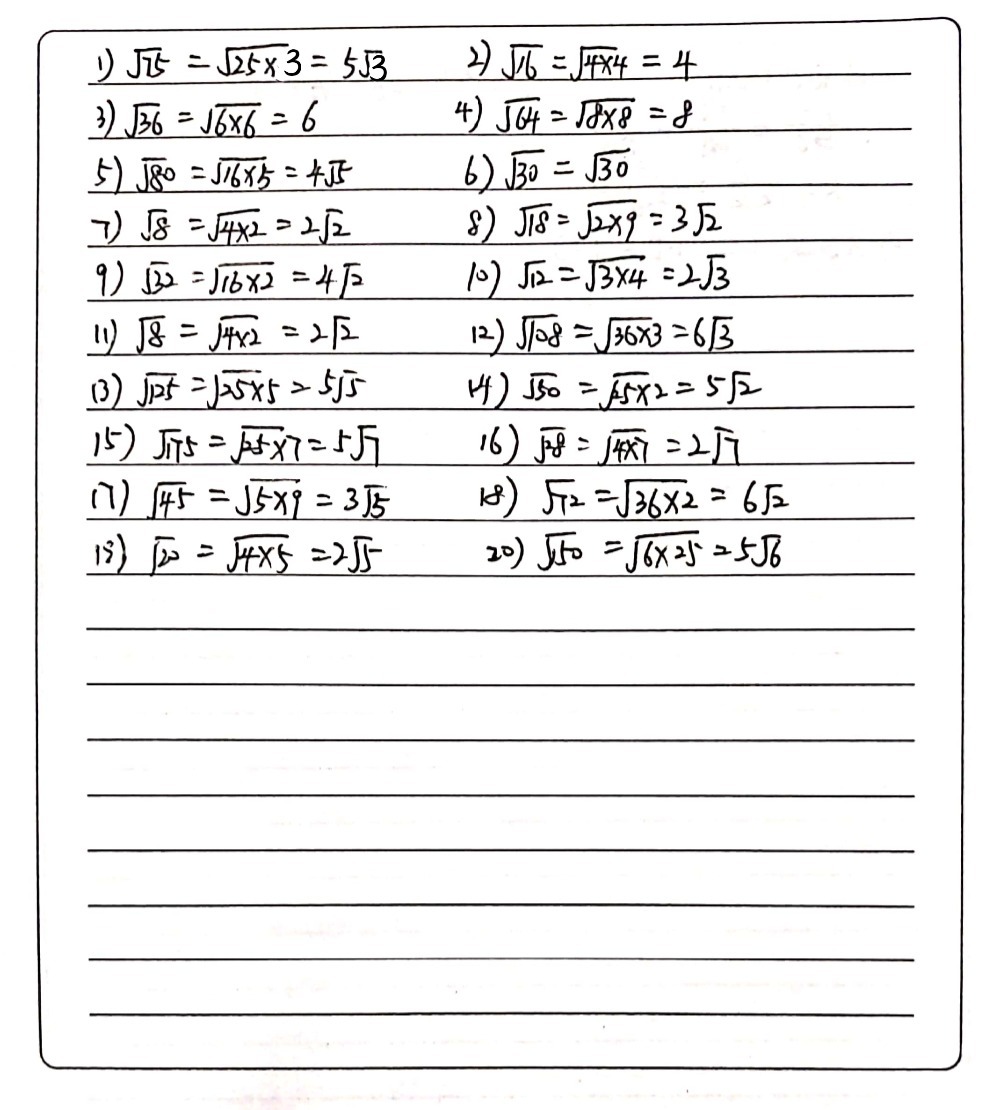 1) √75 = √25×3 = 5√3 2) √16 = √4×4 = 4
3) √36 = √6×6 = 6 4) √64 = √8×8 = 8
5) √80 = √16×5 = 4√5 6) √30 = √30
7) √8 = √4×2 = 2√2 8) √18 = √2×9 = 3√2
9) √32 = √16×2 = 4√2 10) √12 = √3×4 = 2√3
11) √8 = √4×2 = 2√2 12) √108 = √36×3 = 6√3
13) √125 = √25×5 = 5√5 14) √50 = √25×2 = 5√2
15) √175 = √25×7 = 5√7 16) √28 = √4×7 = 2√7
17) √45 = √5×9 = 3√5 18) √72 = √36×2 = 6√2
19) √20 = √4×5 = 2√5 20) √150 = √6×25 = 5√6